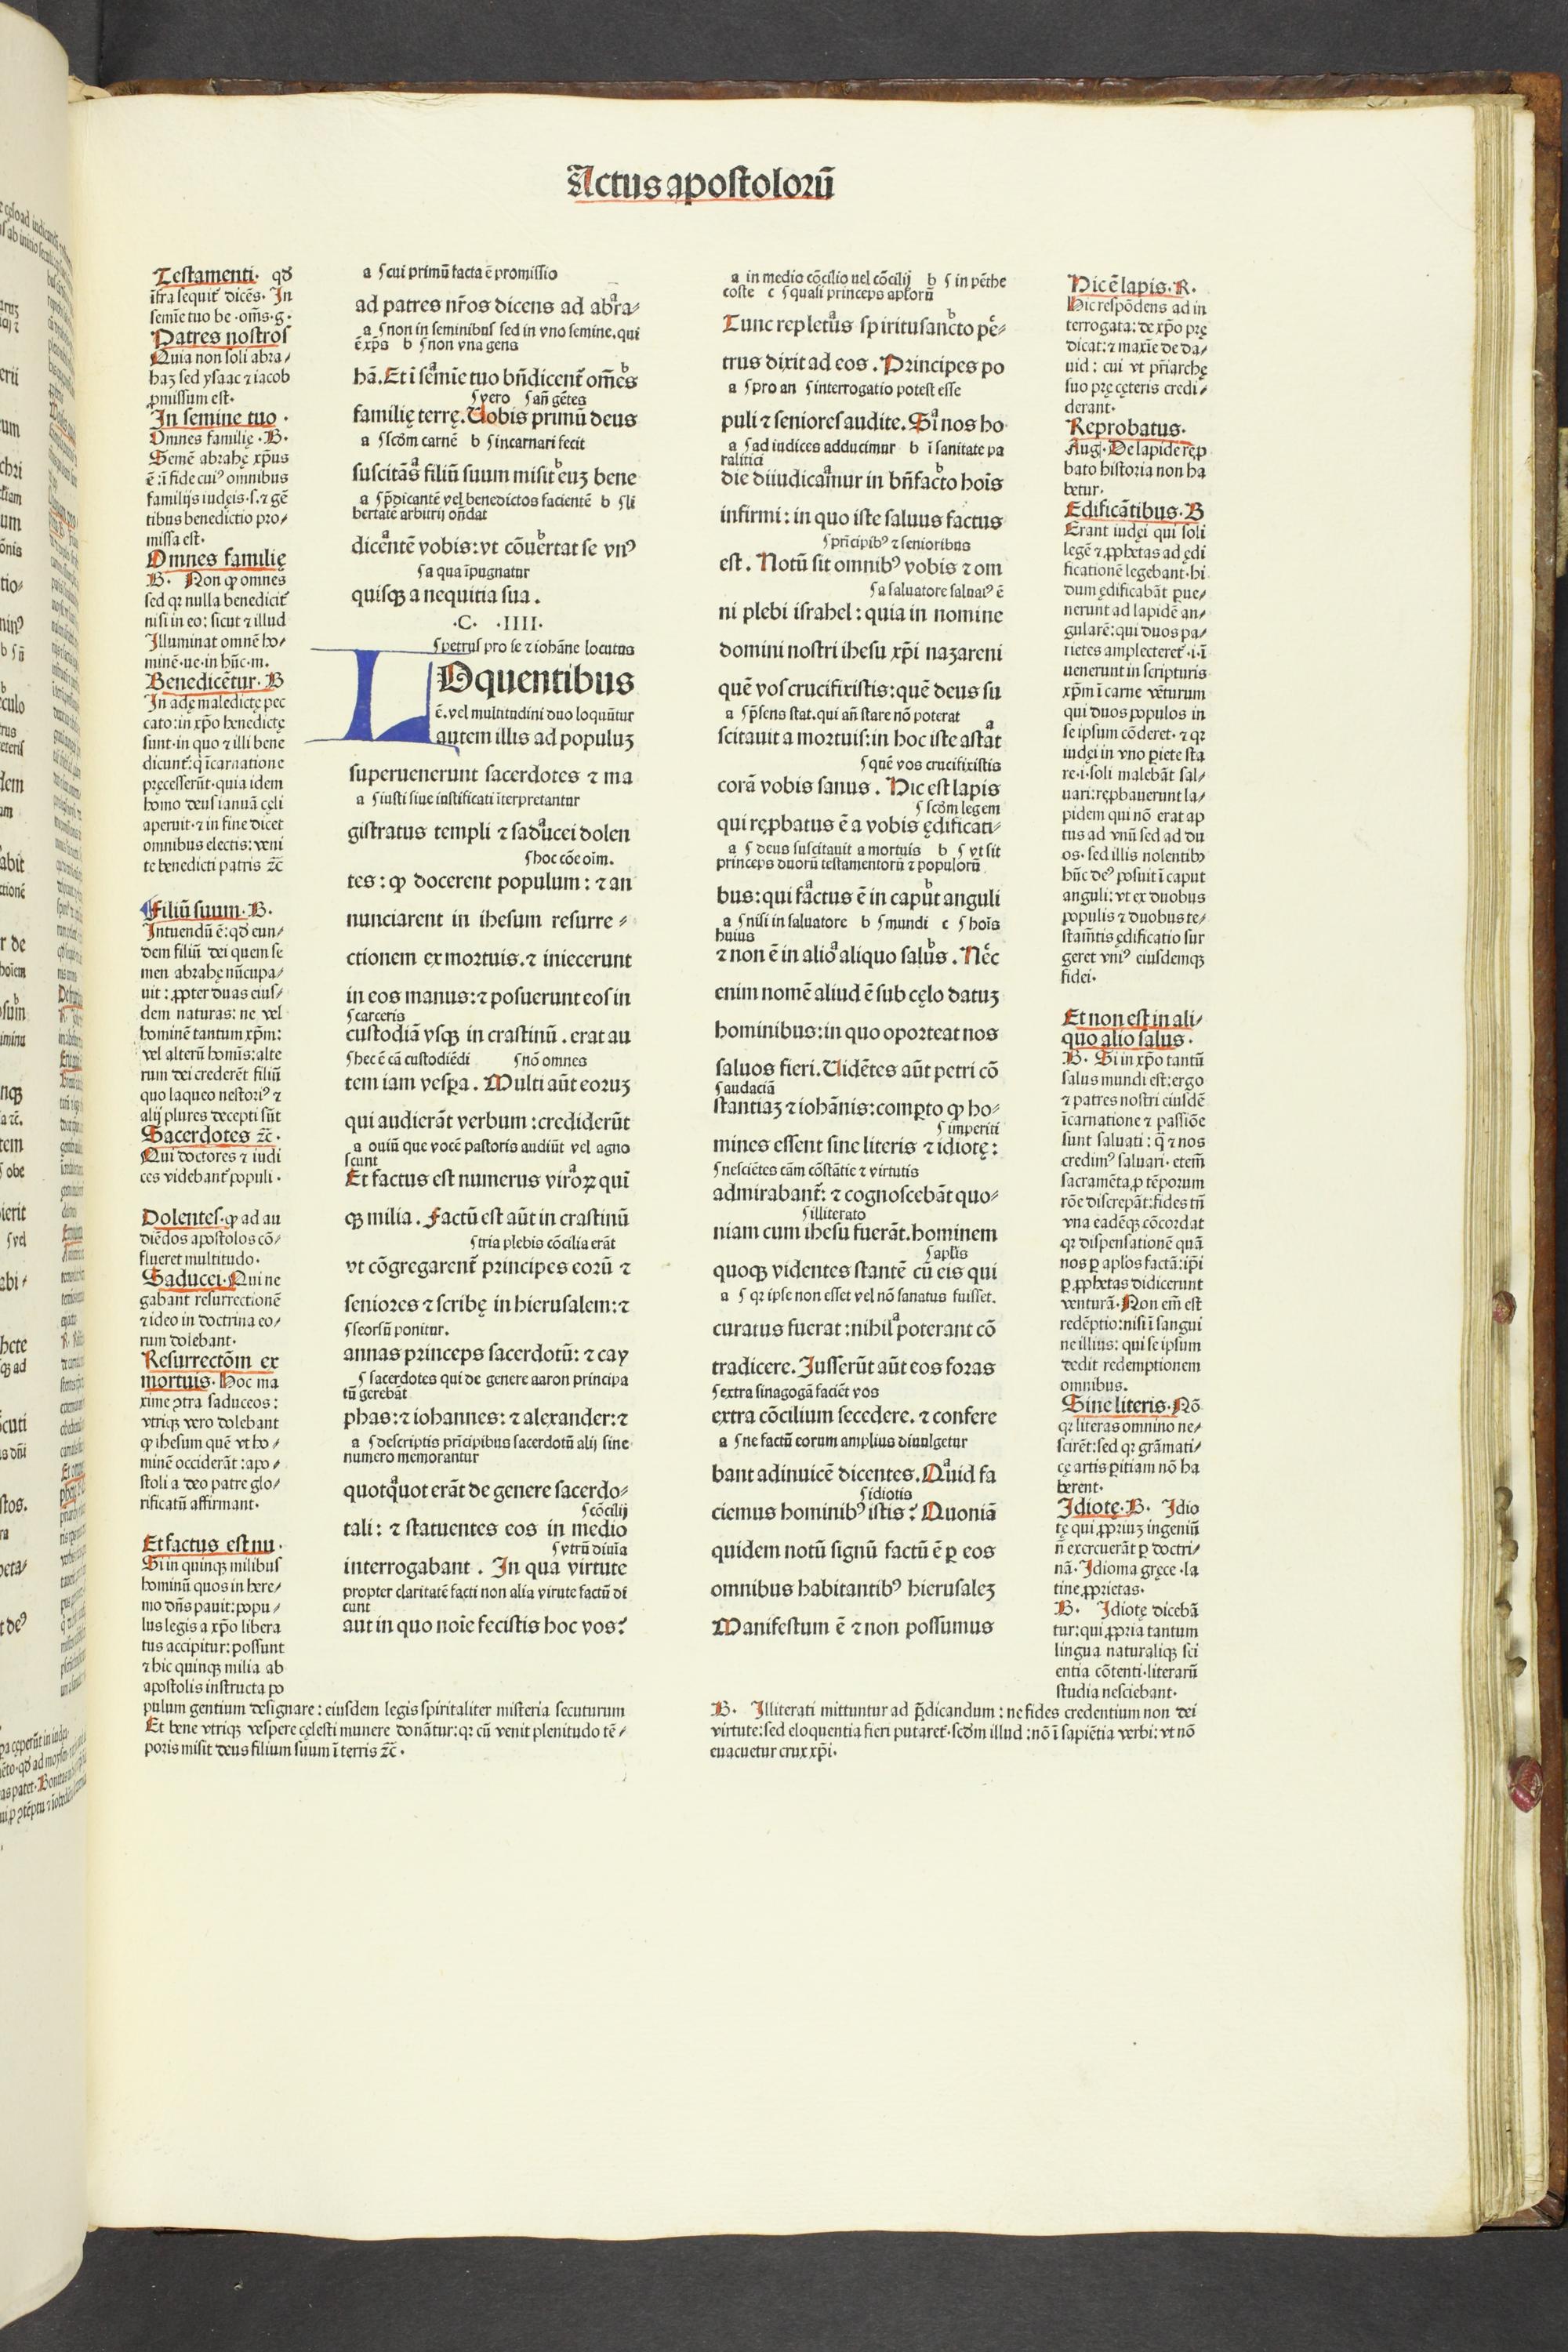 Actus apostoloꝝ̄
Testamenti· qď
ifra sequit᷑ dicēs· In
semīe tuo be·om̄s·g·
Patres nostros
Quia non soli abra⸗
haꝫ sed ysaac ⁊ iacob
ꝓmissum est·
In semine tuo·
Omnes familię·B·
Semē abrahę xp̄us
ē:ī fide cuiꝰ omnibus
familijs iudęis·s·⁊ gē
tibus benedictio pro⸗
missa est·
Omnes familię
B· Non ꝙ omnes
sed qꝛ nulla benedicit᷑
nisi in eo: sicut ⁊ illud
Illuminat omnē ho⸗
minē·ue·in hūc·m·
Benedicētur·B
In adę maledictę pec
cato:in xp̄o benedictę
sunt·in quo ⁊ illi bene
dicunt᷑:q̄ īcarnatione
pręcesserūt·quia idem
homo deus ianuā cęli
aperuit·⁊ in fine dicet
omnibus electis:veni
te benedicti patris ⁊c̄
Filiū suum·B·
Intuendū ē:qď eun⸗
dem filiū dei quem se
men abrahę nūcupa⸗
uit:ꝓpter duas eius⸗
dem naturas: ne vel
hominē tantum xp̄m:
vel alterū homīs:alte
rum dei crederēt filiū
quo laqueo nestoriꝰ ⁊
alij plures decepti sūt
Sacerdotes ⁊c̄·
Qui doctores ⁊ iudi
ces videbant᷑ populi·
Dolentes·ꝙ ad au
diēdos apostolos cō⸗
flueret multitudo·
Saducei·Qui ne
gabant resurrectionē
⁊ ideo in doctrina eo⸗
rum dolebant·
Resurrectōm ex
mortuis·Hoc ma
xime ꝯtra saduceos:
vtriqꝫ vero dolebant
ꝙ ihesum quē vt ho⸗
minē occiderāt:apo⸗
stoli a deo patre glo⸗
rificatū affirmant·
Et factus est nu·
Si in quinqꝫ milibus
hominū quos in here⸗
mo dn̄s pauit:popu⸗
lus legis a xp̄o libera
tus accipitur:possunt
⁊ hic quinqꝫ milia ab
apostolis instructa po
pulum gentium designare: eiusdem legis spiritaliter misteria secuturum
Et bene vtriqꝫ vespere cęlesti munere donātur:qꝛ cū venit plenitudo tē⸗
poris misit deus filium suum ī terris ⁊c̄·
a ſ cui primū facta ē promissio
ad patres nr̄os dicens ad abra⸗
a ſ non in seminibus sed in vno semine.qui
ē xp̄s b ſ non vna gens
hā.Et ī semīe tuo bn̄dicent᷑ om̄es
ſ vero ſ an̄ gētes
familię terrę.Uobis primū deus
a ſ scďm carnē b ſ incarnari fecit
suscitās filiū suum misit euꝫ bene
a ſ p̄dicantē vel benedictos facientē b ſ li
bertatē arbitrij on̄dat
dicentē vobis:vt cōuertat se vnꝰ
ſ a qua īpugnatur
quisqꝫ a nequitia sua.
·C· ·IIII·
ſ petrus pro se ⁊ iohāne locutus
LOquentibus
ē.vel multitudini duo loquūtur
autem illis ad populuꝫ
superuenerunt sacerdotes ⁊ ma
a ſ iusti siue iustificati īterpretantur
gistratus templi ⁊ saducei dolen
ſ hoc cōe oīm.
tes: ꝙ docerent populum: ⁊ an
nunciarent in ihesum resurre⸗
ctionem ex mortuis.⁊ iniecerunt
in eos manus:⁊ posuerunt eos in
ſ carceris
custodiā vsqꝫ in crastinū. erat au
ſ hec ē cā custodiēdi ſ nō omnes
tem iam vesꝑa. Multi aūt eoruꝫ
qui audierāt verbum:crediderūt
a ouiū que vocē pastoris audiūt vel agno
scunt
Et factus est numerus viroꝝ qui
qꝫ milia. Factū est aūt in crastinū
ſ tria plebis cōcilia erāt
vt cōgregarent᷑ principes eorū ⁊
seniores ⁊ scribę in hierusalem:⁊
ſ seorsū ponitur.
annas princeps sacerdotū: ⁊ cay
ſ sacerdotes qui de genere aaron principa
tū gerebāt
phas:⁊ iohannes: ⁊ alexander:⁊
a ſ descriptis prīcipibus sacerdotū alij sine
numero memorantur
quotquot erāt de genere sacerdo⸗
ſ cōcilij
tali: ⁊ statuentes eos in medio
ſ vtrū diuīa
interrogabant. In qua virtute
propter claritatē facti non alia virute factū di
cunt
aut in quo noīe fecistis hoc vos?
a in medio cōcilio uel cōcilij b ſ in pēthe
coste c ſ quasi princeps apl̄orū
Tunc repletus spiritusancto pe⸗
trus dixit ad eos. Principes po
a ſ pro an ſ interrogatio potest esse
puli ⁊ seniores audite. Si nos ho
a ſ ad iudices adducimur b ī sanitate pa
ralitici
die diiudicamur in bn̄facto hoīs
infirmi: in quo iste saluus factus
ſ prīcipibꝰ ⁊ senioribus
est. Notū sit omnibꝰ vobis ⁊ om
ſ a saluatore saluaiꝰ ē
ni plebi israhel: quia in nomine
domini nostri ihesu xp̄i nazareni
quē vos crucifixistis:quē deus su
a ſ p̄sens stat.qui an̄ stare nō poterat
scitauit a mortuis:in hoc iste astat
ſ quē vos crucifixistis
corā vobis sanus. Hic est lapis
ſ scďm legem
qui reꝓbatus ē a vobis ędificati⸗
a ſ deus suscitauit a mortuis b ſ vt sit
princeps duorū testamentorū ⁊ populorū
bus:qui factus ē in caput anguli
a ſ nisi in saluatore b ſ mundi c ſ hoīs
huius
⁊ non ē in alio aliquo salus. Nec
enim nomē aliud ē sub cęlo datuꝫ
hominibus:in quo oporteat nos
saluos fieri.Uidētes aūt petri cō
ſ audaciā
stantiaꝫ ⁊ iohānis:comꝑto ꝙ ho⸗
ſ imperiti
mines essent sine literis ⁊ idiotę:
ſ nesciētes cām cōstātie ⁊ virtutis
admirabant᷑: ⁊ cognoscebāt quo⸗
ſ illiterato
niam cum ihesu fuerāt.hominem
ſ apl̄is
quoqꝫ videntes stantē cū eis qui
a ſ qꝛ ipse non esset vel nō sanatus fuisset.
curatus fuerat:nihil poterant cō
tradicere. Jusserūt aūt eos foras
ſ extra sinagogā faciēt vos
extra cōcilium secedere. ⁊ confere
a ſ ne factū eorum amplius diuulgetur
bant adinuicē dicentes. Quid fa
ſ idiotis
ciemus hominibꝰ istis? Quoniā
quidem notū signū factū ē ꝑ eos
omnibus habitantibꝰ hierusaleꝫ
Manifestum ē ⁊ non possumus
Hic ē lapis·R·
Hic respōdens ad in
terrogata:de xp̄o prę
dicat:⁊ maxīe de da⸗
uid: cui vt pr̄iarchę
suo prę cęteris credi⸗
derant·
Reprobatus·
Aug·De lapide reꝓ
bato historia non ha
betur·
Edificātibus·B
Erant iudęi qui soli
legē ⁊ ꝓphetas ad ędi
ficationē legebant·hi
dum ędificabāt ꝑue⸗
nerunt ad lapidē an⸗
gularē:qui duos pa⸗
rietes amplecteret᷑·i·ī
uenerunt in scripturis
xp̄m ī carne vēturum
qui duos populos in
se ipsum cōderet·⁊ qꝛ
iudęi in vno ꝑiete sta
re·i·soli malebāt sal⸗
uari:reꝓbauerunt la⸗
pidem qui nō erat ap
tus ad vnū sed ad du
os·sed illis nolentibꝰ
hūc deꝰ posuit ī caput
anguli:vt ex duobus
populis ⁊ duobus te⸗
stam̄tis ędificatio sur
geret vniꝰ eiusdemqꝫ
fidei·
Et non est in ali⸗
quo alio salus·
B· Si in xp̄o tantū
salus mundi est:ergo
⁊ patres nostri eiusdē
īcarnatione ⁊ passiōe
sunt saluati: q̄ ⁊ nos
credimꝰ saluari·etem̄
sacramēta,ꝓ tēporum
rōe discrepāt:fides tn̄
vna eadēqꝫ cōcordat
qꝛ dispensationē quā
nos ꝑ apl̄os factā:ip̄i
ꝑ ꝓphetas didicerunt
venturā·Non em̄ est
redēptio:nisi ī sangui
ne illius: qui se ipsum
dedit redemptionem
omnibus.
Sine literis·Nō
qꝛ literas omnino ne⸗
scirēt:sed qꝛ grāmati⸗
cę artis ꝑitiam nō ha
berent·
Idiotę·B· Idio
tę qui ꝓpriuꝫ ingeniū
n̄ exercuerāt ꝑ doctri⸗
nā·Idioma gręce·la
tine ꝓprietas·
B· Idiotę dicebā
tur:qui ꝓpria tantum
lingua naturaliqꝫ sci
entia cōtenti·literarū
studia nesciebant·
B· Illiterati mittuntur ad p̄dicandum: ne fides credentium non dei
virtute:sed eloquentia fieri putaret᷑·scďm illud:nō ī sapiētia verbi:vt nō
euacuetur crux xp̄i·